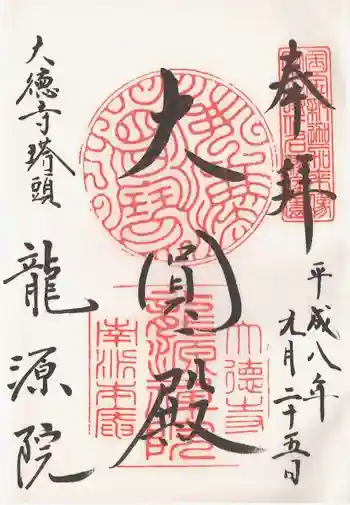 奉拝
平成八年
九月二十五日
大圓殿
大德寺
南派本庵
大徳寺塔頭
龍源院